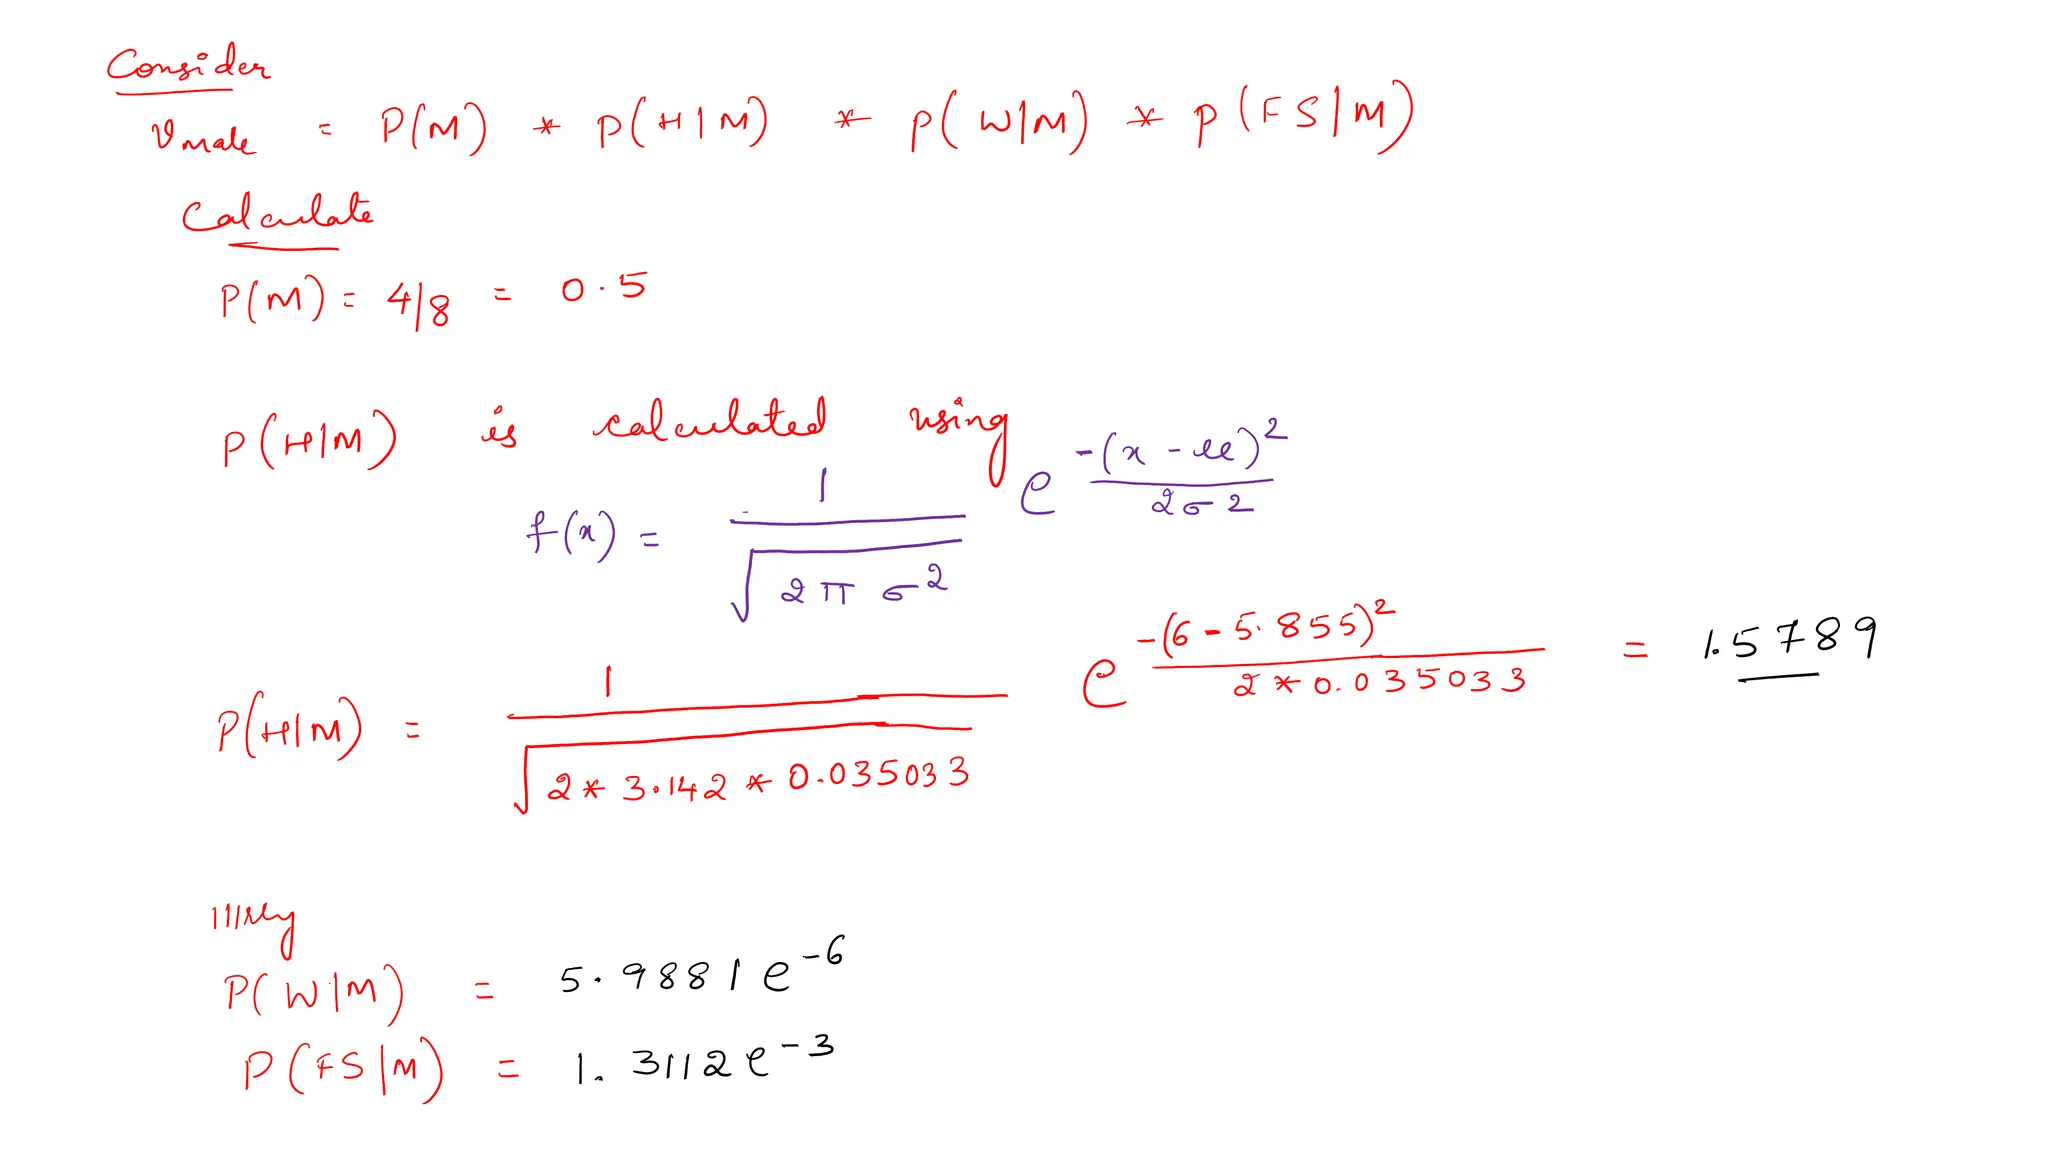 Consider
vmale = P(M) * P(H|M) * P(W|M) * P(FS|M)
Calculate
P(M) = 4/8 = 0.5
P(H|M) is calculated using
f(x) = 1/√(2πσ²) e^(-(x-μ)²/2σ²)
P(H|M) = 1/√(2*3.142*0.035033) e^(-(6-5.855)²/2*0.035033) = 1.5789
|||rly
P(W|M) = 5.9881e⁻⁶
P(FS|M) = 1.3112e⁻³